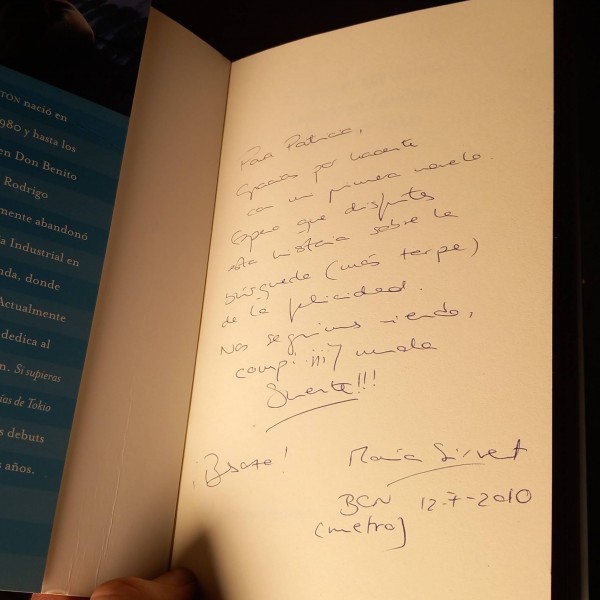 TON nació en
980 y hasta los
en Don Benito
Rodrigo
mente abandonó
a Industrial en
nda, donde
Actualmente
dedica al
n. Si supieras
ías de Tokio
s debuts
s años.
Para Patricia,
Gracias por hacerte
con mi primera novela.
Espero que disfrutes
esta historia sobre la
búsqueda (más torpe)
de la felicidad.
Nos seguimos viendo,
compi ¡¡¡y mucha
Suerte!!!
¡Besazo!
María Sirvent
BCN 12-7-2010
(metro)